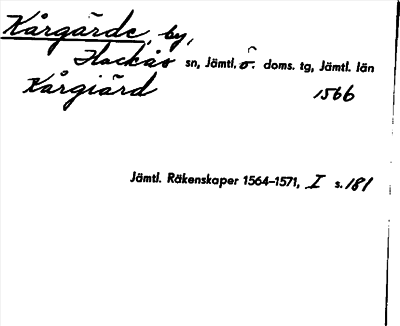 Kårgärde, by,
Hackås sn, Jämtl. ö. doms. tg, Jämtl. län
Kårgiärd 1566
Jämtl. Räkenskaper 1564–1571, I s. 181